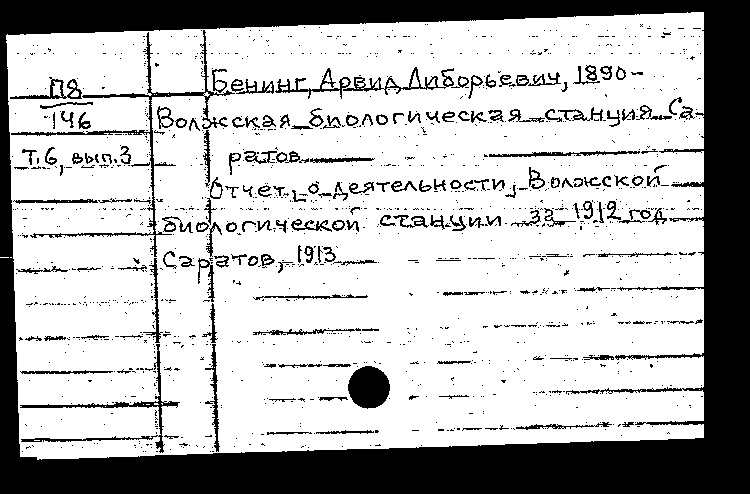 П8
146
Т.6, вып.3
Бенинг, Арвид Либорьевич, 1890-
Волжская биологическая станция. Са-
ратов
Отчет о деятельности Волжской
биологической станции за 1912 год
Саратов, 1913